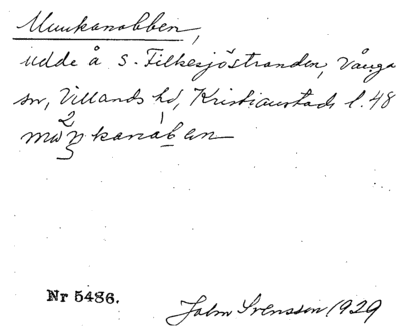 Munkanabben,
udde å S. Filkesjöstranden, Vånga
sn, Villands hd, Kristianstads l. 48
Nr 5486.
John Svensson 1929